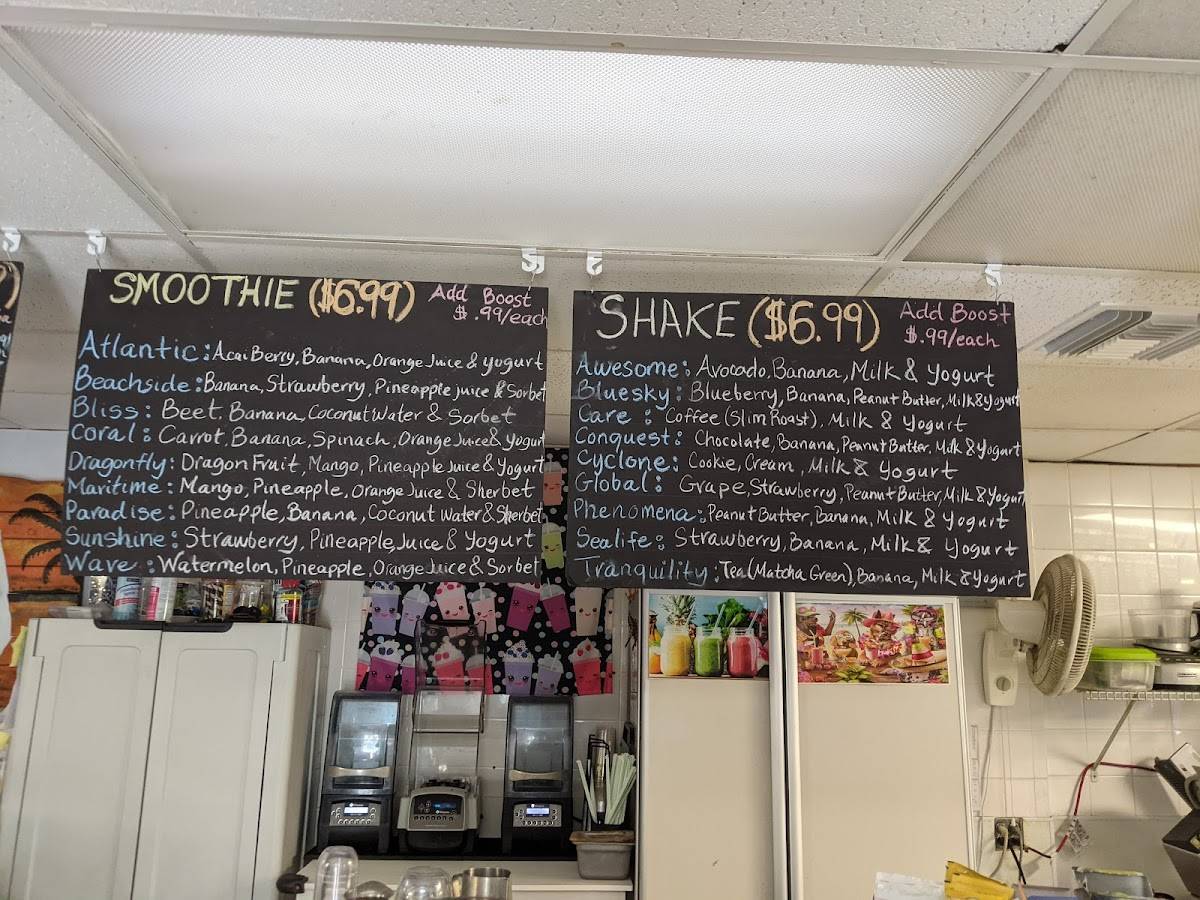 SMOOTHIE ($6.99) Add Boost
$.99/each
Atlantic: Acai Berry, Banana, Orange Juice & Yogurt
Beachside: Banana, Strawberry, Pineapple juice & Sorbet
Bliss: Beet, Banana, Coconut Water & Sorbet
Coral: Carrot, Banana, Spinach, Orange Juice & Yogurt
Dragonfly: Dragon Fruit, Mango, Pineapple Juice & Yogurt
Maritime: Mango, Pineapple, Orange Juice & Sherbet
Paradise: Pineapple, Banana, Coconut Water & Sherbet
Sunshine: Strawberry, Pineapple Juice & Yogurt
Wave: Watermelon, Pineapple, Orange Juice & Sorbet
SHAKE ($6.99) Add Boost
$.99/each
Awesome: Avocado, Banana, Milk & Yogurt
Bluesky: Blueberry, Banana, Peanut Butter, Milk & Yogurt
Care: Coffee (Slim Roast), Milk & Yogurt
Conquest: Chocolate, Banana, Peanut Butter, Milk & Yogurt
Cyclone: Cookie, Cream, Milk & Yogurt
Global: Grape, Strawberry, Peanut Butter, Milk & Yogurt
Phenomena: Peanut Butter, Banana, Milk & Yogurt
Sealife: Strawberry, Banana, Milk & Yogurt
Tranquility: Tea (Matcha Green), Banana, Milk & Yogurt